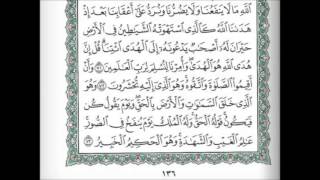 ٱللَّهِ مَا لَا يَنفَعُنَا وَلَا يَضُرُّنَا وَنُرَدُّ عَلَىٰٓ أَعْقَابِنَا بَعْدَ إِذْ
هَدَىٰنَا ٱللَّهُ كَٱلَّذِى ٱسْتَهْوَتْهُ ٱلشَّيَٰطِينُ فِى ٱلْأَرْضِ
حَيْرَانَ لَهُۥٓ أَصْحَٰبٌ يَدْعُونَهُۥٓ إِلَى ٱلْهُدَى ٱئْتِنَا قُلْ إِنَّ
هُدَى ٱللَّهِ هُوَ ٱلْهُدَىٰ وَأُمِرْنَا لِنُسْلِمَ لِرَبِّ ٱلْعَٰلَمِينَ ۝٧١
وَأَنْ أَقِيمُوا۟ ٱلصَّلَوٰةَ وَٱتَّقُوهُ وَهُوَ ٱلَّذِىٓ إِلَيْهِ تُحْشَرُونَ ۝٧٢ وَهُوَ
ٱلَّذِى خَلَقَ ٱلسَّمَٰوَٰتِ وَٱلْأَرْضَ بِٱلْحَقِّ وَيَوْمَ يَقُولُ كُن
فَيَكُونُ قَوْلُهُ ٱلْحَقُّ وَلَهُ ٱلْمُلْكُ يَوْمَ يُنفَخُ فِى ٱلصُّورِ
عَٰلِمُ ٱلْغَيْبِ وَٱلشَّهَٰدَةِ وَهُوَ ٱلْحَكِيمُ ٱلْخَبِيرُ ۝٧٣
١٣٦